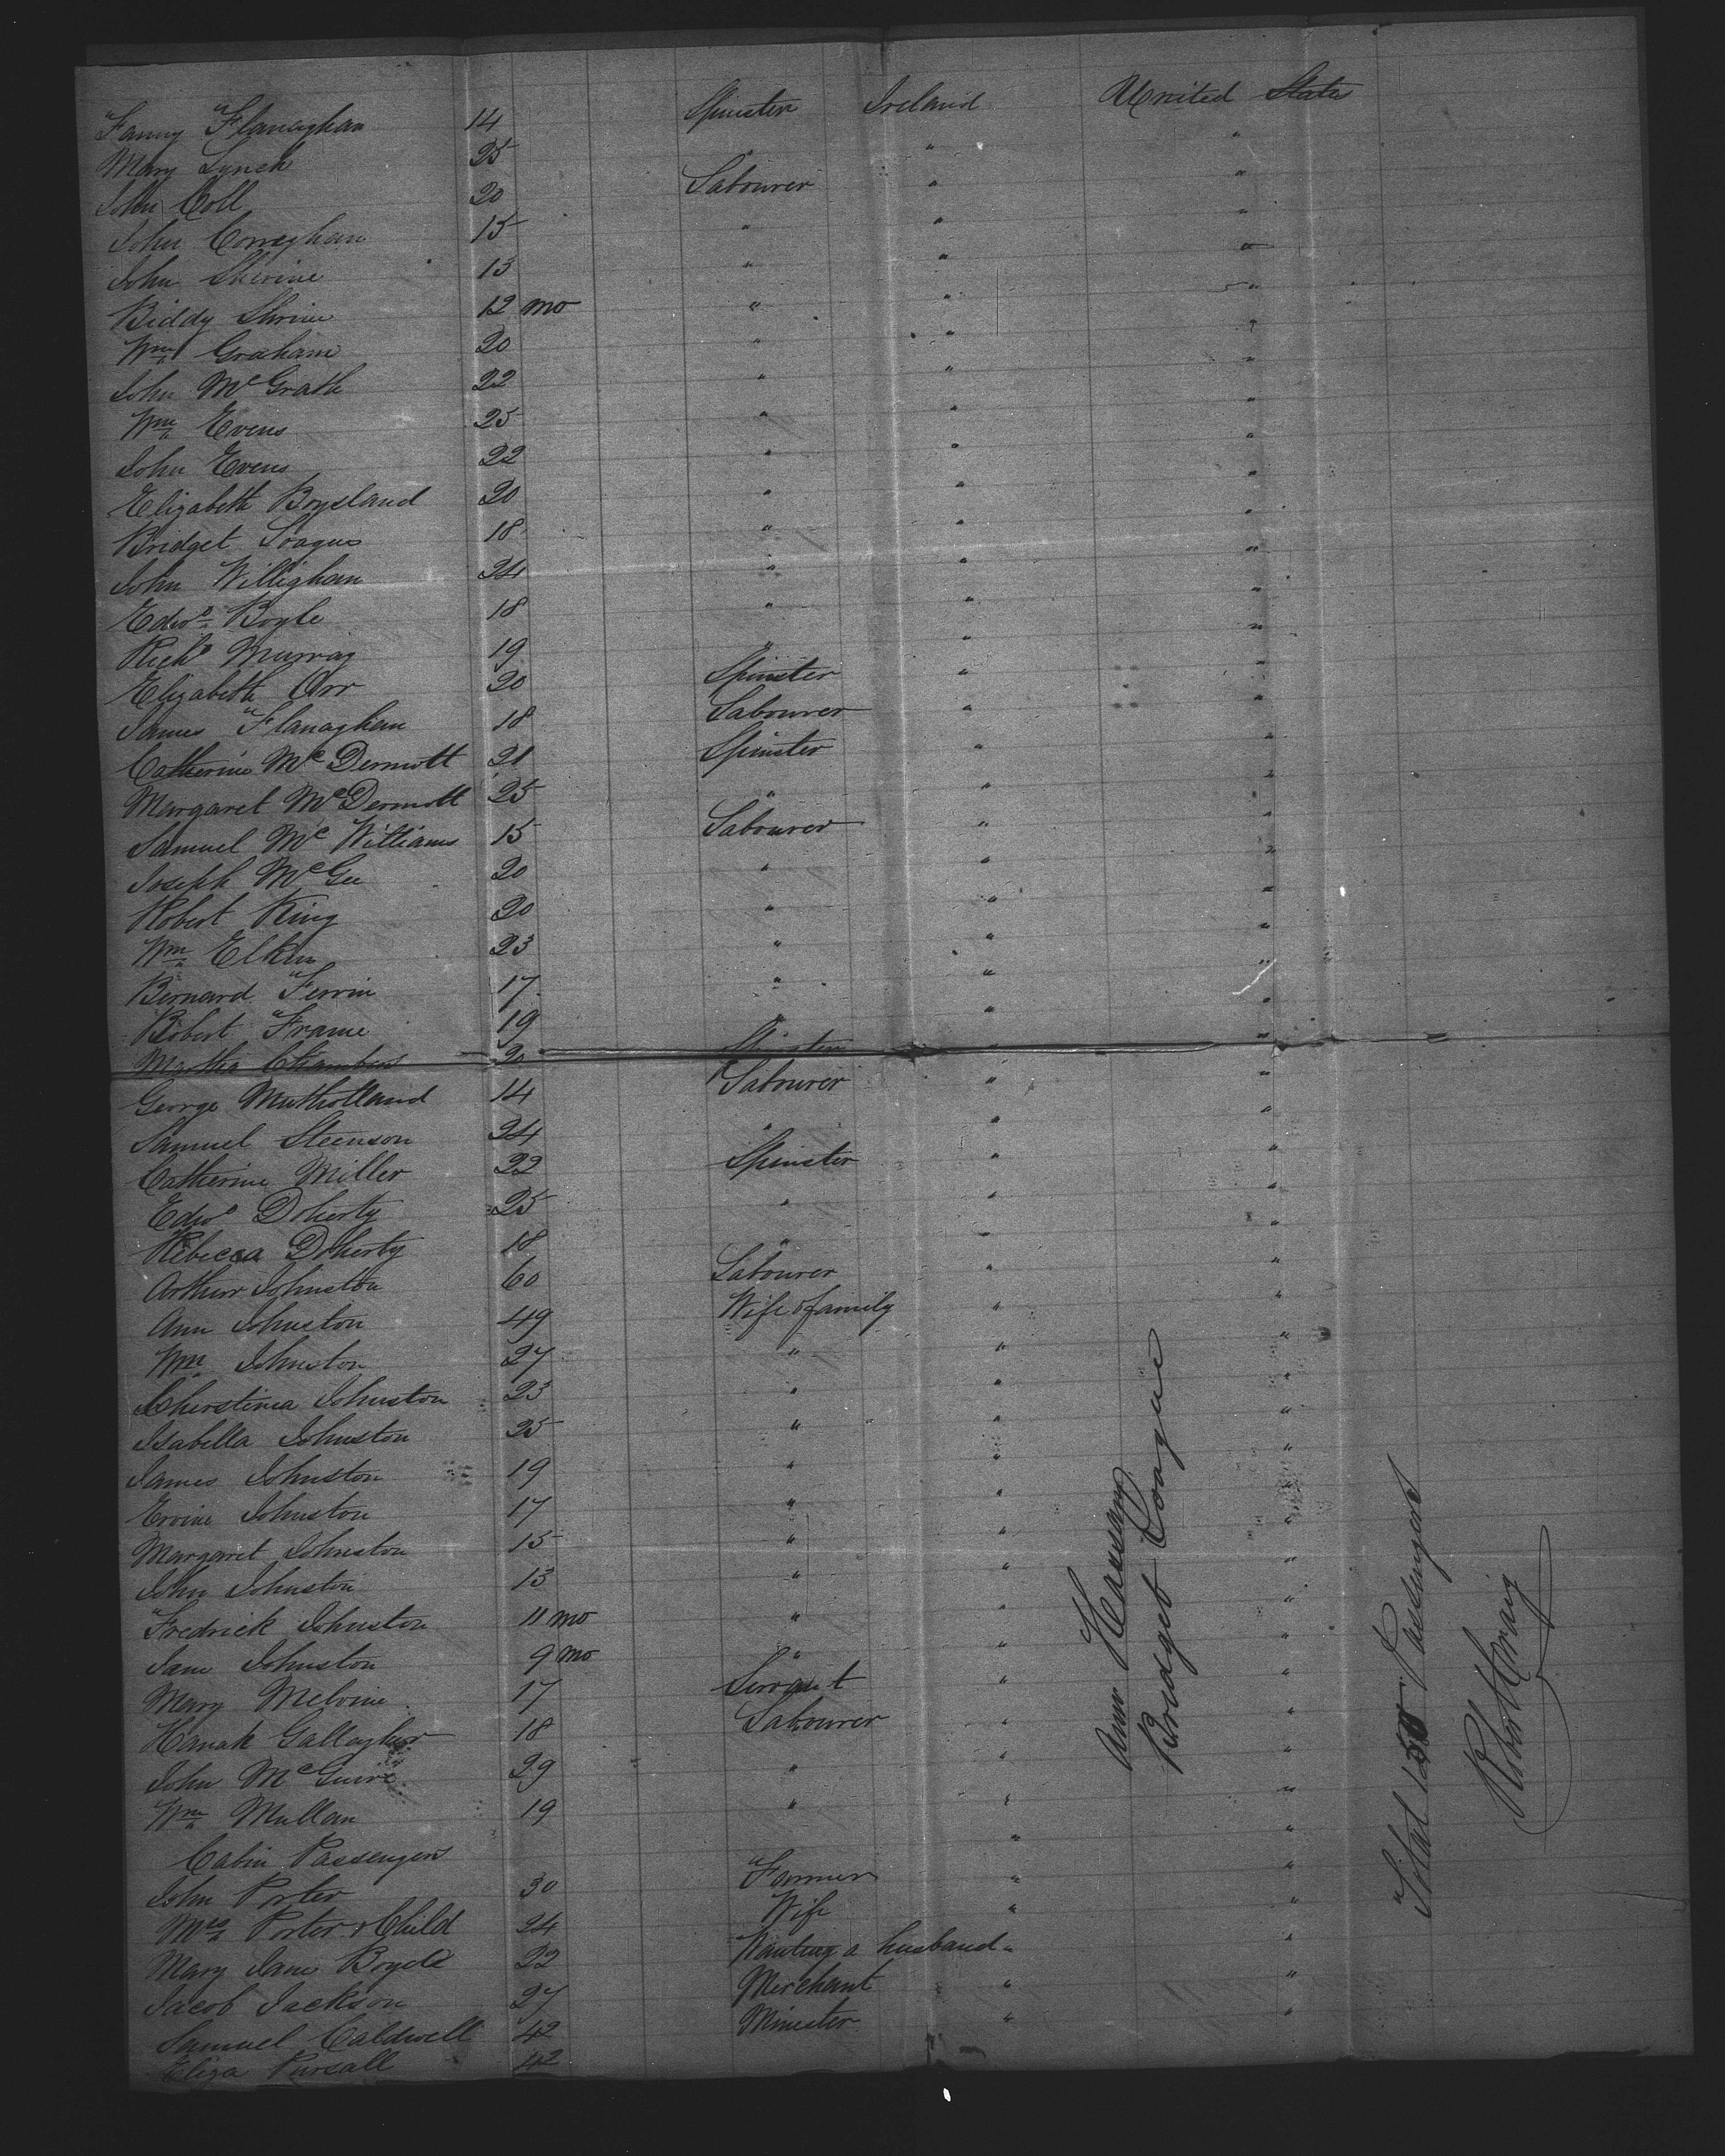 Fanny Flanaghan 14 Spinster Ireland United States
Mary Lynch 25 " " "
John Coll 20 Labourer " "
John Conaghan 15 " " "
John Sherine 13 " " "
Biddy Shrine 12 mo " " "
Wm Graham 20 " " "
John McGrath 22 " " "
Wm Evens 25 " " "
John Evens 22 " " "
Elizabeth Boysland 20 " " "
Bridget Loague 18 " " "
John Willighan 24 " " "
Edwd Boyle 18 " " "
Richd Murray 19 " " "
Elizabeth Orr 20 Spinster " "
James Flanaghan 18 Labourer " "
Catherine McDermott 21 Spinster " "
Margaret McDermott 25 " " "
Samuel McWilliams 15 Labourer " "
Joseph McGee 20 " " "
Robert King 20 " " "
Wm Elkin 23 " " "
Bernard Ferrin 17 " " "
Robert Frame 19 " " "
Martha Chambers 20 Spinster " "
George Mutholland 14 Labourer " "
Samuel Steenson 24 " " "
Catherine Miller 22 Spinster " "
Edwd Doherty 25 " " "
Rebecca Doherty 18 " " "
Arthur Johnston 60 Labourer " "
Ann Johnston 49 Wife & family " "
Wm Johnston 27 " " "
Cherstinia Johnston 23 " " "
Isabella Johnston 25 " " "
James Johnston 19 " " "
Ervine Johnston 17 " " "
Margaret Johnston 15 " " "
John Johnston 13 " " "
Fredrick Johnston 11 mo " " "
Jane Johnston 9 mo " " "
Mary Melvine 17 Servant " "
Hanah Gallagher 18 Labourer " "
John McGuire 29 " " "
Wm Mullan 19 " " "
Cabin Passengers " "
John Porter 30 Farmer " "
Mrs Porter & Child 24 Wife " "
Mary Jane Boyde 22 Wanting a husband " "
Jacob Jackson 27 Merchant " "
Samuel Caldwell 42 Minester " "
Eliza Pursall 42
Ann Hassan
Bridget Loague
Total Passengers
Robert Craig